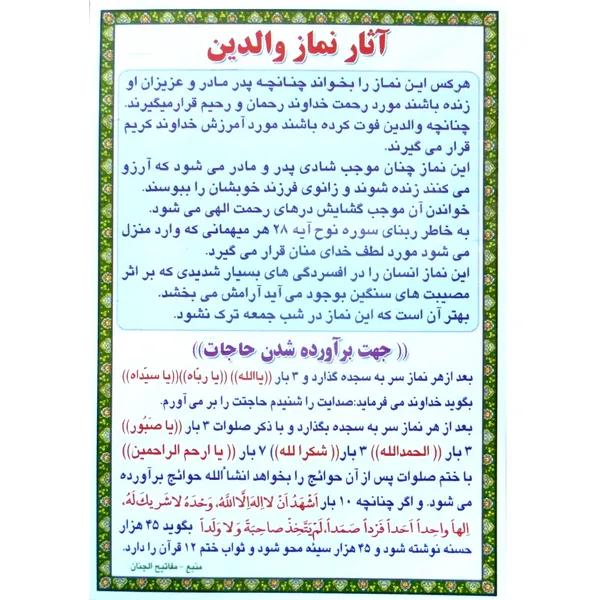 آثار نماز والدین
هرکس این نماز را بخواند چنانچه پدر مادر و عزیزان او
زنده باشند مورد رحمت خداوند رحمان و رحیم قرارمیگیرند.
چنانچه والدین فوت کرده باشند مورد آمرزش خداوند کریم
قرار می گیرند.
این نماز چنان موجب شادی پدر و مادر می شود که آرزو
می کنند زنده شوند و زانوی فرزند خویشان را ببوسند.
خواندن آن موجب گشایش درهای رحمت الهی می شود.
به خاطر ربنای سوره نوح آیه ۲۸ هر میهمانی که وارد منزل
می شود مورد لطف خدای منان قرار می گیرد.
این نماز انسان را در افسردگی های بسیار شدیدی که بر اثر
مصیبت های سنگین بوجود می آید آرامش می بخشد.
بهتر آن است که این نماز در شب جمعه ترک نشود.
(( جهت برآورده شدن حاجات))
بعد ازهر نماز سر به سجده گذارد و ۳ بار ((یاالله)) ((یا ربّاه))((یا سیّداه))
بگوید خداوند می فرماید:صدایت را شنیدم حاجتت را بر می آورم.
بعد از هر نماز سر به سجده بگذارد و با ذکر صلوات ۳ بار ((یا صَبُور))
۳ بار (( الحمدالله)) ۳ بار(( شکرا لله)) ۷ بار (( یا ارحم الراحمین))
با ختم صلوات پس از آن حوائج را بخواهد انشاألله حوائج برآورده
می شود. و اگر چنانچه ۱۰ بار اَشْهَدُ اَنْ لا اِلهَ اِلَّا اللهُ، وَحْدَهُ لا شَریكَ لَهُ،
اِلهاً واحِداً اَحَداً فَرْداً صَمَداً، لَمْ یَتَّخِذْ صاحِبَةً وَ لا وَلَداً بگوید ۴۵ هزار
حسنه نوشته شود و ۴۵ هزار سیئه محو شود و ثواب ختم ۱۲ قرآن را دارد.
منبع - مفاتیح الجنان